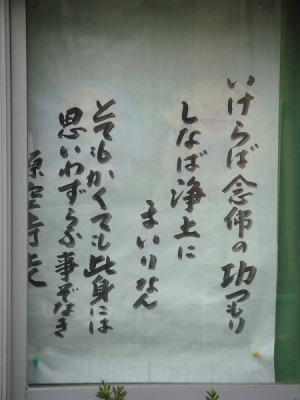 いけらば念佛の功つもり
しなば浄土に
まいりなん
とてもかくても此身には
思いわずらふ事ぞなき
源空